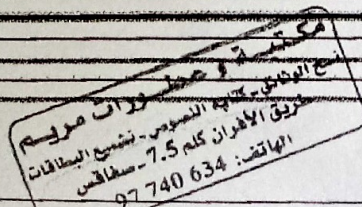 مكتبة و عطورات مريم
نسخ الوثائق - كتابة النصوص - تشميع البطاقات
طريق الأفران كلم 7.5 - صفاقس
الهاتف: 634 740 97